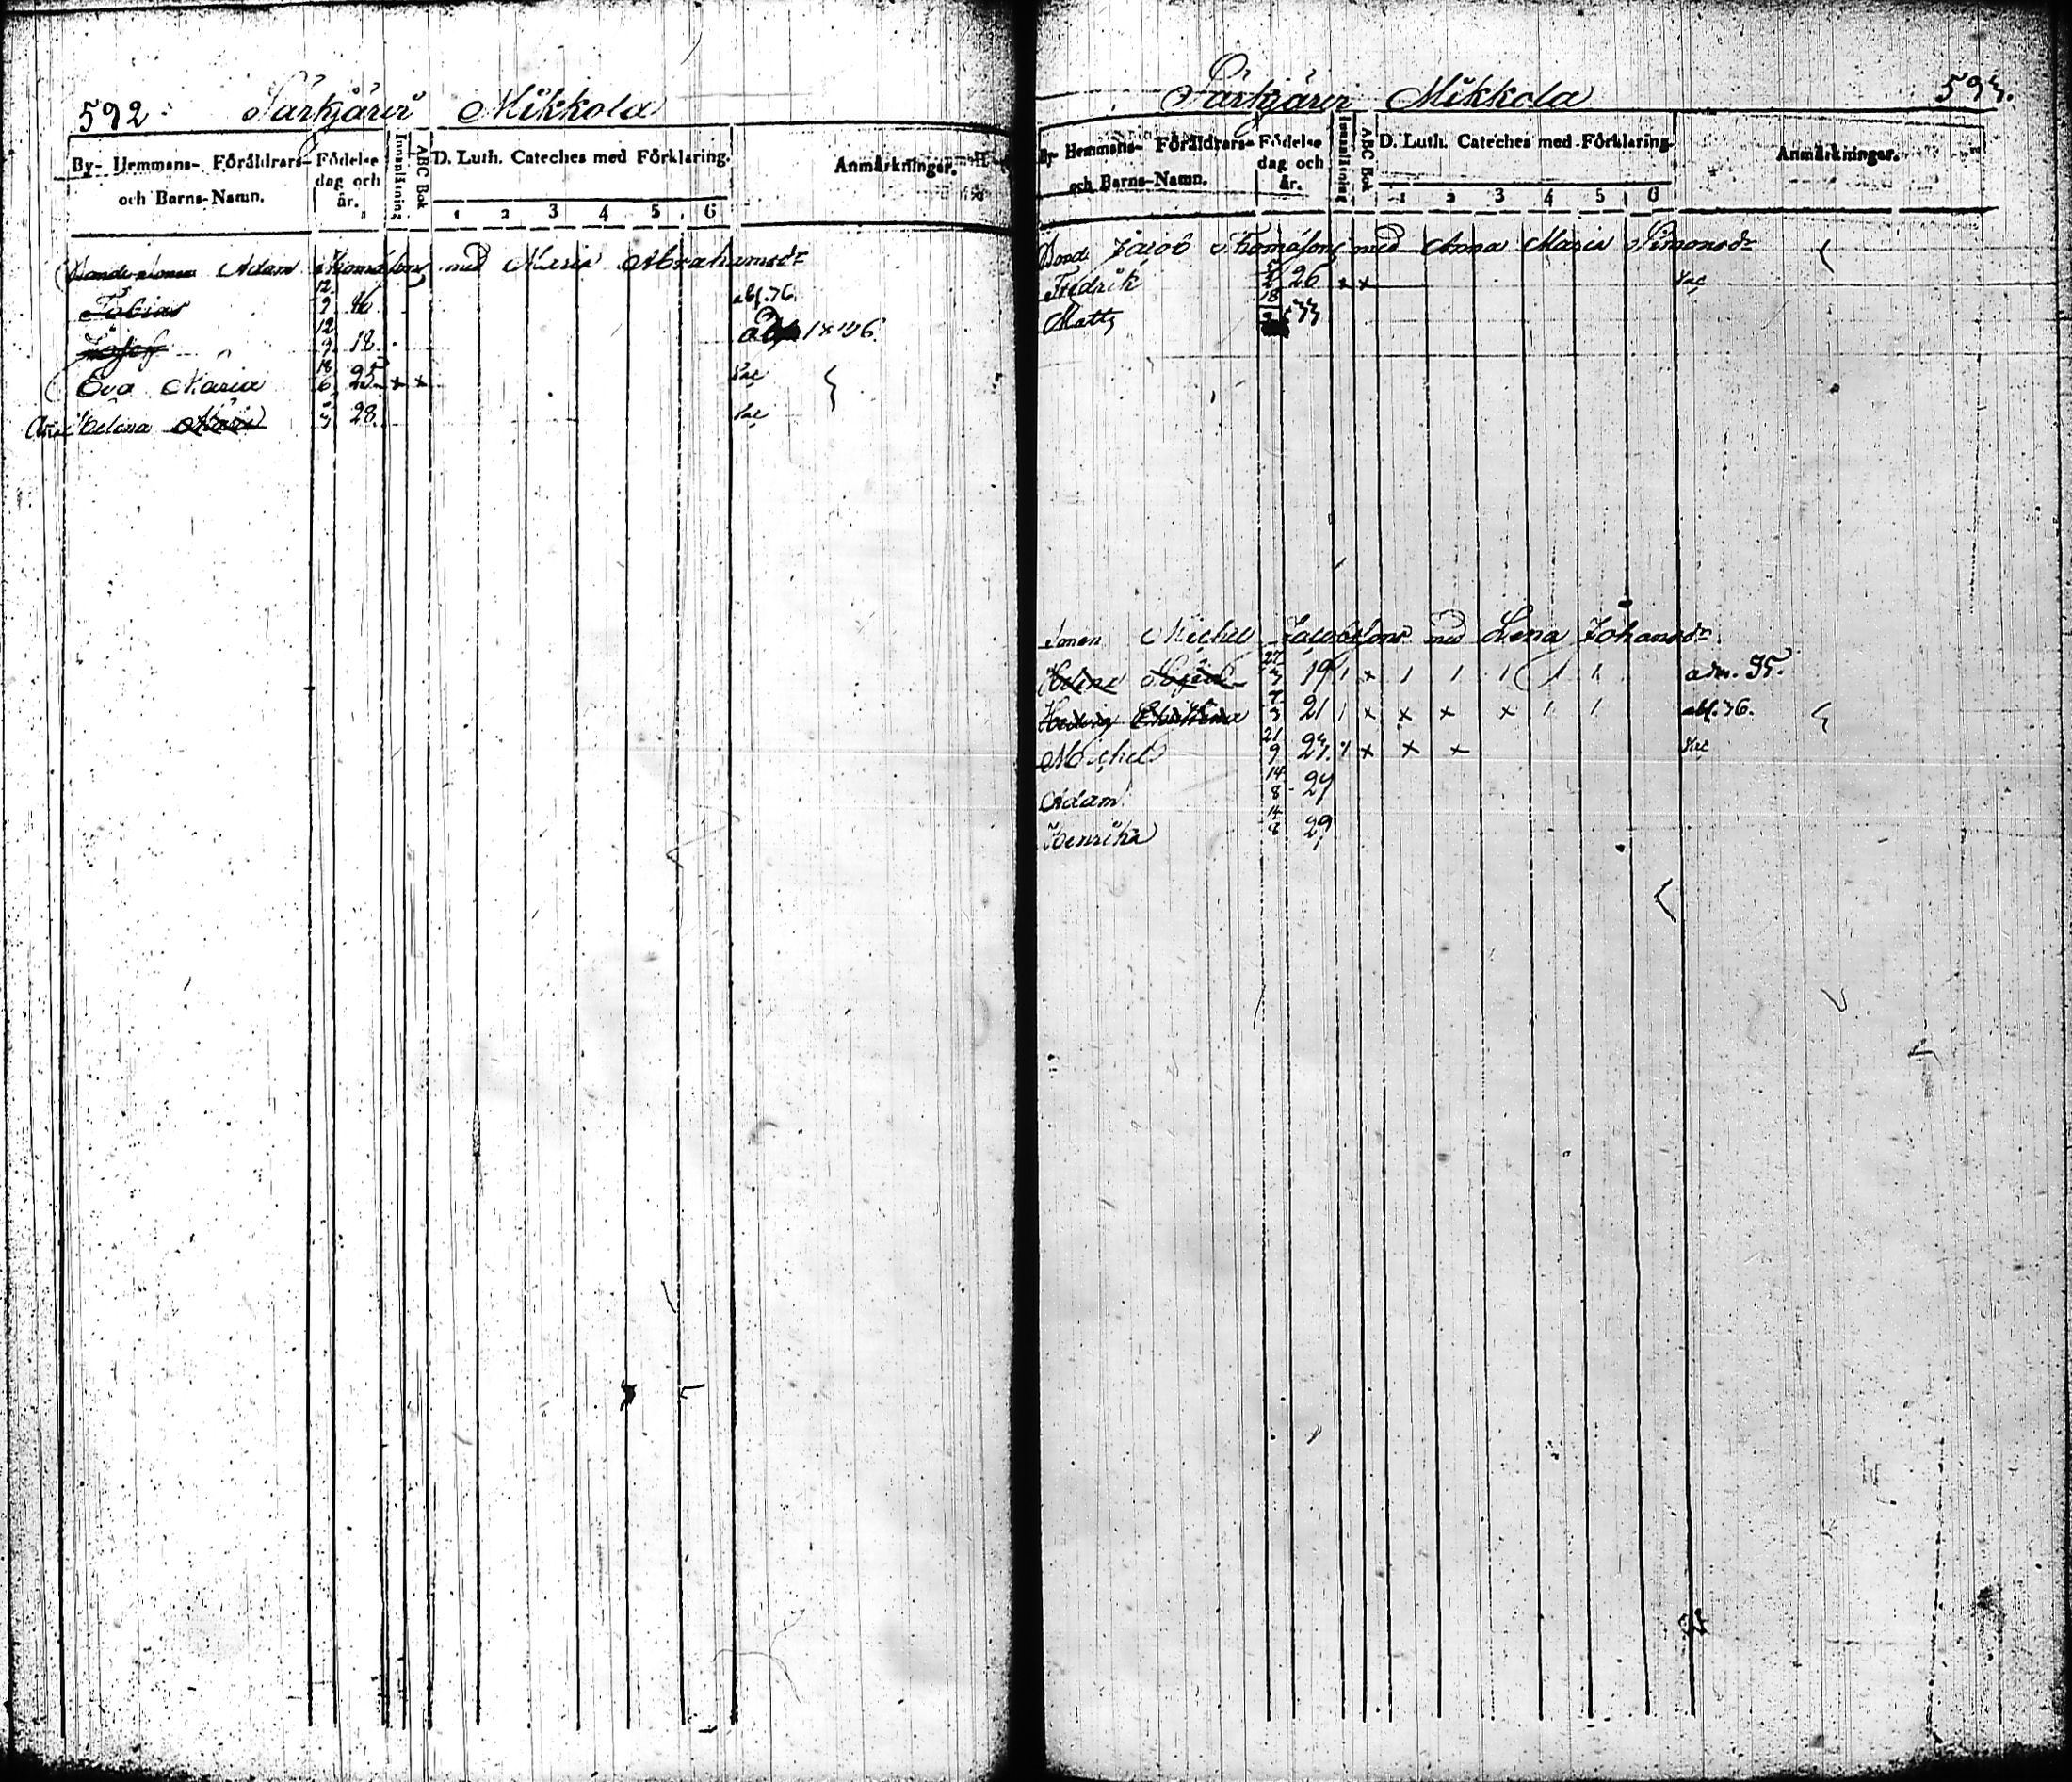 592 Särkjärvi Mikkola
By- Hemmans- Föräldrars- och Barns-Namn. Födelse dag och år. Innanläsning ABC Bok D. Luth. Cateches med Förklaring. Anmärkningar.
1 2 3 4 5 6
Adam Thomasson med Maria Abrahamsdr
Tobias 12 9 abf. 36.
Josef 12 18 1836.
Eva Maria 18 6 25 x x Vac
Helena Maria 28 Vac
Särkjärvi Mikkola 593.
By- Hemmans- Föräldrars- och Barns-Namn. Födelse dag och år. Innanläsning ABC Bok D. Luth. Cateches med Förklaring. Anmärkningar.
1 2 3 4 5 6
Bond. Jacob Thomasson med Anna Maria Simonsdr
Fredrik 26 x x Vac
Matts 18 33
Sonen Michel Jacobsson med Lena Johansdr
Helena 27 3 19 1 x 1 1 1 1 1 adm. 35.
Hedvig 3 21 1 x x x x 1 1 abf. 36.
Michel 21 9 24. x x x Vac
Adam 14 8 27
Henrika 14 8 29